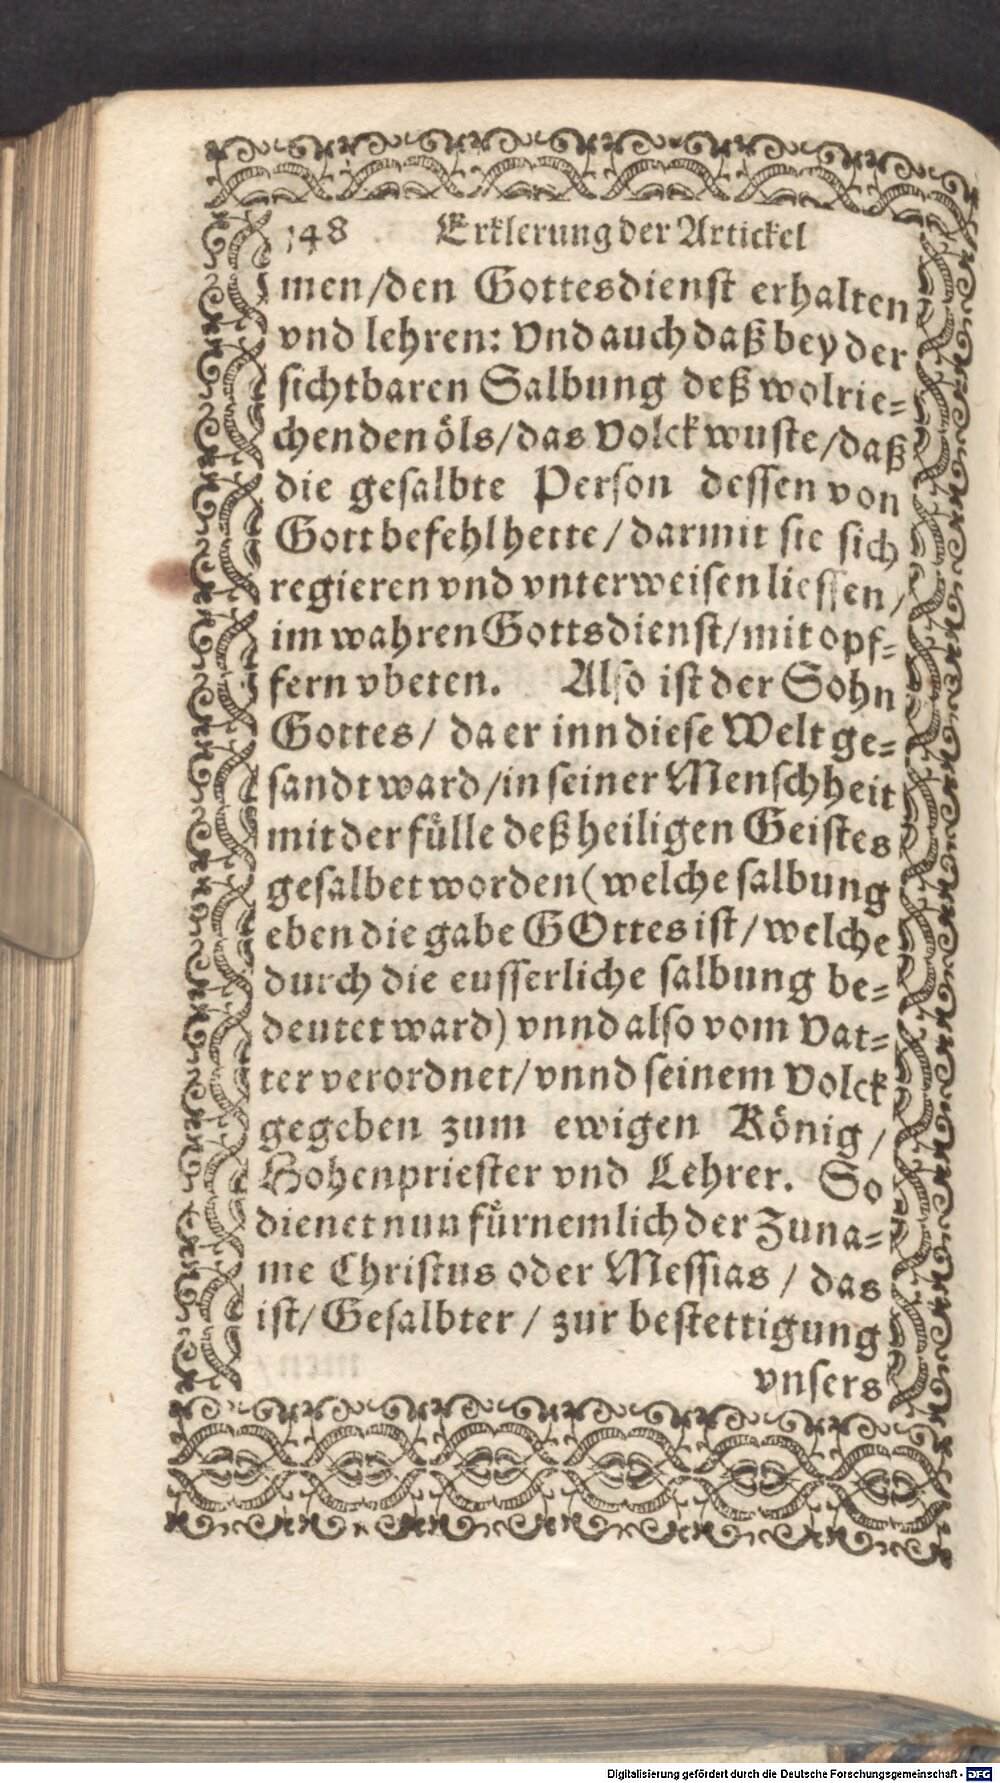 148 Erklerung der Artickel
men/den Gottesdienst erhalten
vnd lehren: Vnd auch daß bey der
sichtbaren Salbung deß wolrie-
chenden öls/das Volck wuste/daß
die gesalbte Person dessen von
Gott befehl hette/darmit sie sich
regieren vnd vnterweisen liessen/
im wahren Gottsdienst/mit opf-
fern vbeten. Also ist der Sohn
Gottes/ da er inn diese Welt ge-
sandt ward/in seiner Menschheit
mit der fülle deß heiligen Geistes
gesalbet worden (welche salbung
eben die gabe GOttes ist/welche
durch die eusserliche salbung be-
deutet ward) vnnd also vom Vat-
ter verordnet/vnnd seinem Volck
gegeben zum ewigen König/
Hohenpriester vnd Lehrer. So
dienet nun fürnemlich der Zuna-
me Christus oder Messias/ das
ist/Gesalbter/ zur bestettigung
vnsers
Digitalisierung gefördert durch die Deutsche Forschungsgemeinschaft - DFG